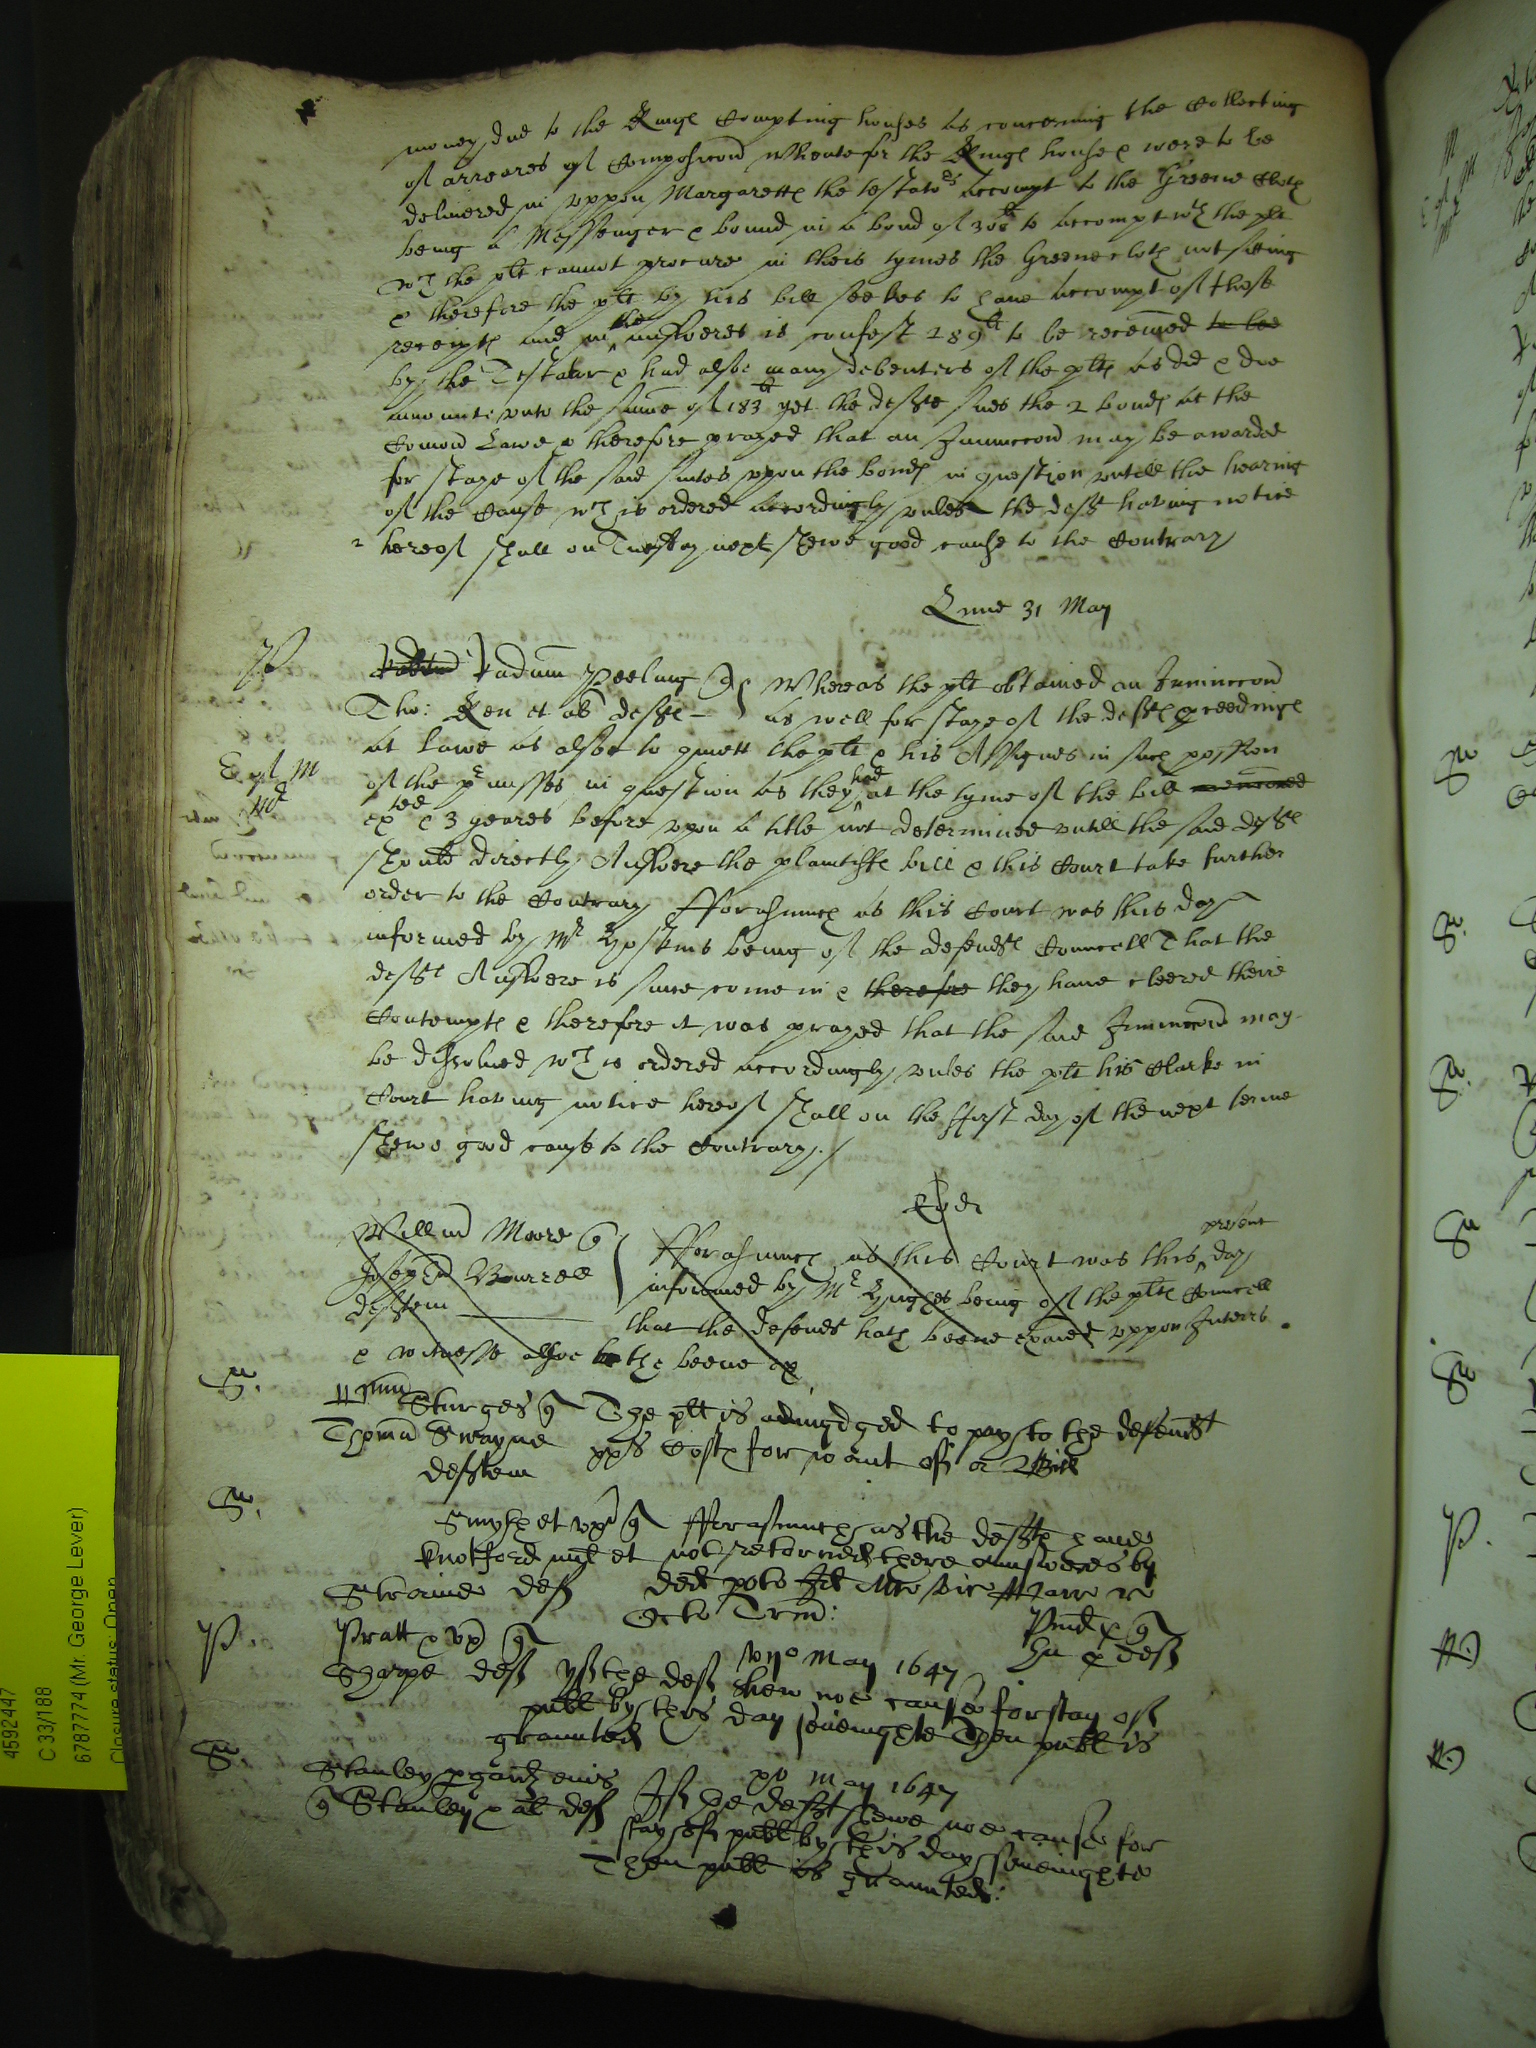 money due to the Kings Compting houses as concerning the Collecting
of arreares of Composicon Wheate for the Kings house & were to be
delivered in vppon Margarette the testators accompt to the Greene Cloth
being a Messenger & bound in a bond of 300li to accompt wch the plt
wch the plt cannot procure in theis tymes the Greenecloth not sitting
& therefore the plt by his bill seekes to have accompt of those
receipts and in the answeres is confest 289li to be received to bee
by the Testator & had alsoe many debenters of the plts as did & doe
amount vnto the sume of 183li yet the defte sues the 2 bonds at the
Comon Lawe & therefore prayed that an Iniunccon may be awarded
for staye of the said suites vpon the bonds in question vntill the hearing
of the Cause wch is ordered accordingly vnles the deft having notice
hereof shall on Tuesday next shewe good cause to the Contrary
Lune 31 May
P
Adam Peeling q
Tho: Key et al defts
Whereas the plt obtained an Iniunccon
as well for staye of the defts proceedings
at Lawe as alsoe to quiett the plt & his Assignes in such possion
of the premisses in question as they had at the tyme of the bill
& 3 yeares before vpon a title not determined vntill the said defts
should directly Answere the plaintiffs bill & this Court take further
order to the Contrary Fforasmuch as this Court was this day
informed by Mr Hoskins being of the defendts Councell That the
defts Answere is since come in & therefore they have cleered theire
Contempts & therefore it was prayed that the said Iniunccon may
be dissolved wch is ordered accordingly vnles the plt his Clarke in
Court having notice hereof shall on the ffirst day of the next terme
shewe good cause to the Contrary./
Eod
Willm Moore q
Joseph Burrell
deftem
Fforasmuch as this Court was this present day
informed by Mr Hughes being of the plts Councell
that the defendt hath beene exaied vppon Interr
& witnesse alsoe hath beene ex
S.
Sturges q The plt is adiudged to pay to the defendt
Swayne xxs Costs for want of a Bill
deftem
S.
Smyth et vx q Fforasmuch as the defts have
Knotford mil et not retorned there answeres by
def
Octo Trin:
P.
Pratt & vx q
Sharpe def
vijo May 1647
yf the def shew noe cause for stay of
publ by this day sevenighte Then publ is
graunted
S.
Stanley
q Stanley & al def
po May 1647
If the deft shewe noe cause for
stay of publ by this day sevenighte
Then publ is graunted:
4592447
C 33/188
6787774 (Mr. George Lever)
Closure status: Open